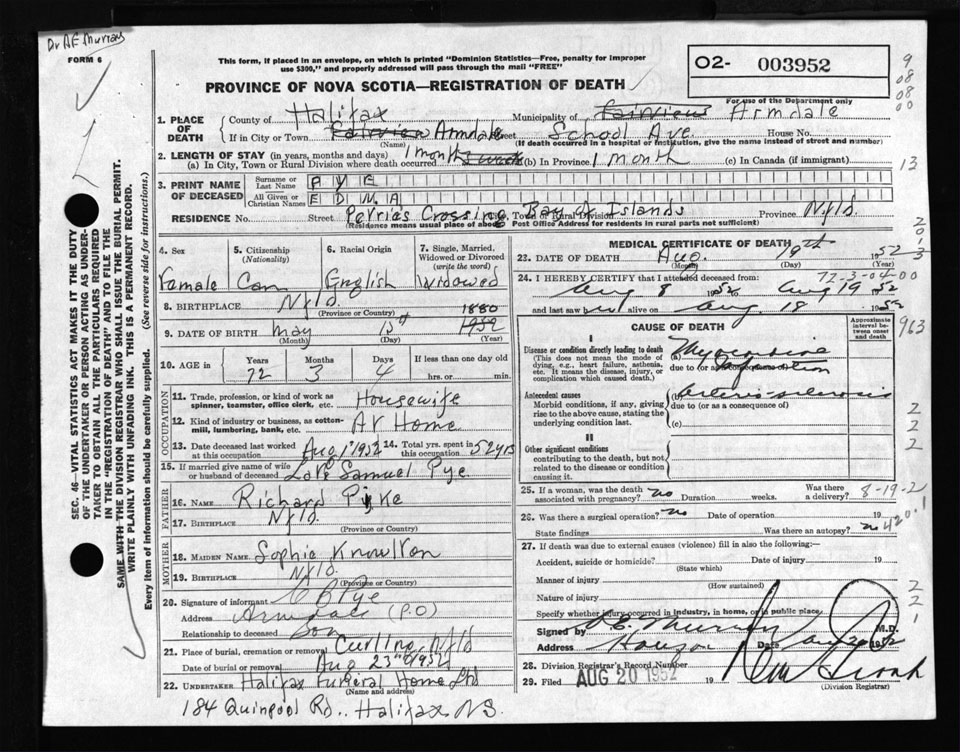 Dr A E Murray
FORM 6
This form, if placed in an envelope, on which is printed "Dominion Statistics—Free, penalty for improper
use $300," and properly addressed will pass through the mail "FREE"
O2- 003952
For use of the Department only
PROVINCE OF NOVA SCOTIA—REGISTRATION OF DEATH
9
08
08
00
1. PLACE OF DEATH
County of Halifax Municipality of Fairview Armdale
If in City or Town Fairview Armdale Street School Ave House No.
(Name) (If death occurred in a hospital or institution, give the name instead of street and number)
2. LENGTH OF STAY (in years, months and days)
(a) In City, Town or Rural Division where death occurred 1 month 2 week (b) In Province 1 month (c) In Canada (if immigrant)
13
3. PRINT NAME OF DECEASED
Surname or Last Name PYE
All Given or Christian Names EDNA
RESIDENCE No. Street Petries Crossing City, Town or Rural Division Bay of Islands Province Nfld.
(Residence means usual place of abode. Post Office Address for residents in rural parts not sufficient)
4. Sex Female
5. Citizenship (Nationality) Can
6. Racial Origin English
7. Single, Married, Widowed or Divorced (write the word) Widowed
8. BIRTHPLACE Nfld.
(Province or Country)
1880
9. DATE OF BIRTH May 15th 1952
(Month) (Day) (Year)
10. AGE in Years 72 Months 3 Days 4 If less than one day old hrs. or min.
OCCUPATION
11. Trade, profession, or kind of work as spinner, teamster, office clerk, etc. Housewife
12. Kind of industry or business, as cotton-mill, lumbering, bank, etc. At Home
13. Date deceased last worked at this occupation Aug 1 1952 14. Total yrs. spent in this occupation 52 yrs
15. If married give name of wife or husband of deceased Late Samuel Pye
FATHER
16. NAME Richard Pike
17. BIRTHPLACE Nfld.
(Province or Country)
MOTHER
18. MAIDEN NAME Sophie Knowlton
19. BIRTHPLACE Nfld.
(Province or Country)
20. Signature of informant C B Pye
Address Armdale (P.O)
Relationship to deceased Son
21. Place of burial, cremation or removal Curling, Nfld
Date of burial or removal Aug 23rd 1952
22. UNDERTAKER Halifax Funeral Home Ltd
(Name and address)
184 Quinpool Rd., Halifax NS.
MEDICAL CERTIFICATE OF DEATH
23. DATE OF DEATH Aug. 19th 1952
(Month) (Day) (Year)
24. I HEREBY CERTIFY that I attended deceased from: 72-3-04-00
Aug 8 1952 to Aug 19 1952
and last saw her alive on Aug 18 1952
CAUSE OF DEATH
Approximate interval between onset and death
963
I
Disease or condition directly leading to death
(This does not mean the mode of dying, e.g., heart failure, asthenia, etc. It means the disease, injury, or complication which caused death.)
(a) Myocardial Infarction
due to (or as a consequence of)
Antecedent causes
Morbid conditions, if any, giving rise to the above cause, stating the underlying condition last.
(b) Arteriosclerosis
due to (or as a consequence of)
(c)
II
Other significant conditions
contributing to the death, but not related to the disease or condition causing it.
25. If a woman, was the death associated with pregnancy? no Duration weeks. Was there a delivery? 8-19-2
26. Was there a surgical operation? no Date of operation 19
State findings Was there an autopsy? no 420.1
27. If death was due to external causes (violence) fill in also the following:—
Accident, suicide or homicide? Date of injury 19
(State which)
Manner of injury
(How sustained)
Nature of injury
Specify whether injury occurred in industry, in home, or in public place
Signed by A.E. Murray M.D.
Address Date Aug 20 1952
28. Division Registrar's Record Number
29. Filed AUG 20 1952 19
(Division Registrar)
SEC. 46—VITAL STATISTICS ACT MAKES IT THE DUTY
OF THE UNDERTAKER OR PERSON ACTING AS UNDER-
TAKER TO OBTAIN ALL THE PARTICULARS REQUIRED
IN THE "REGISTRATION OF DEATH" AND TO FILE THE
SAME WITH THE DIVISION REGISTRAR WHO SHALL ISSUE THE BURIAL PERMIT.
WRITE PLAINLY WITH UNFADING INK. THIS IS A PERMANENT RECORD.
Every item of information should be carefully supplied. (See reverse side for instructions.)